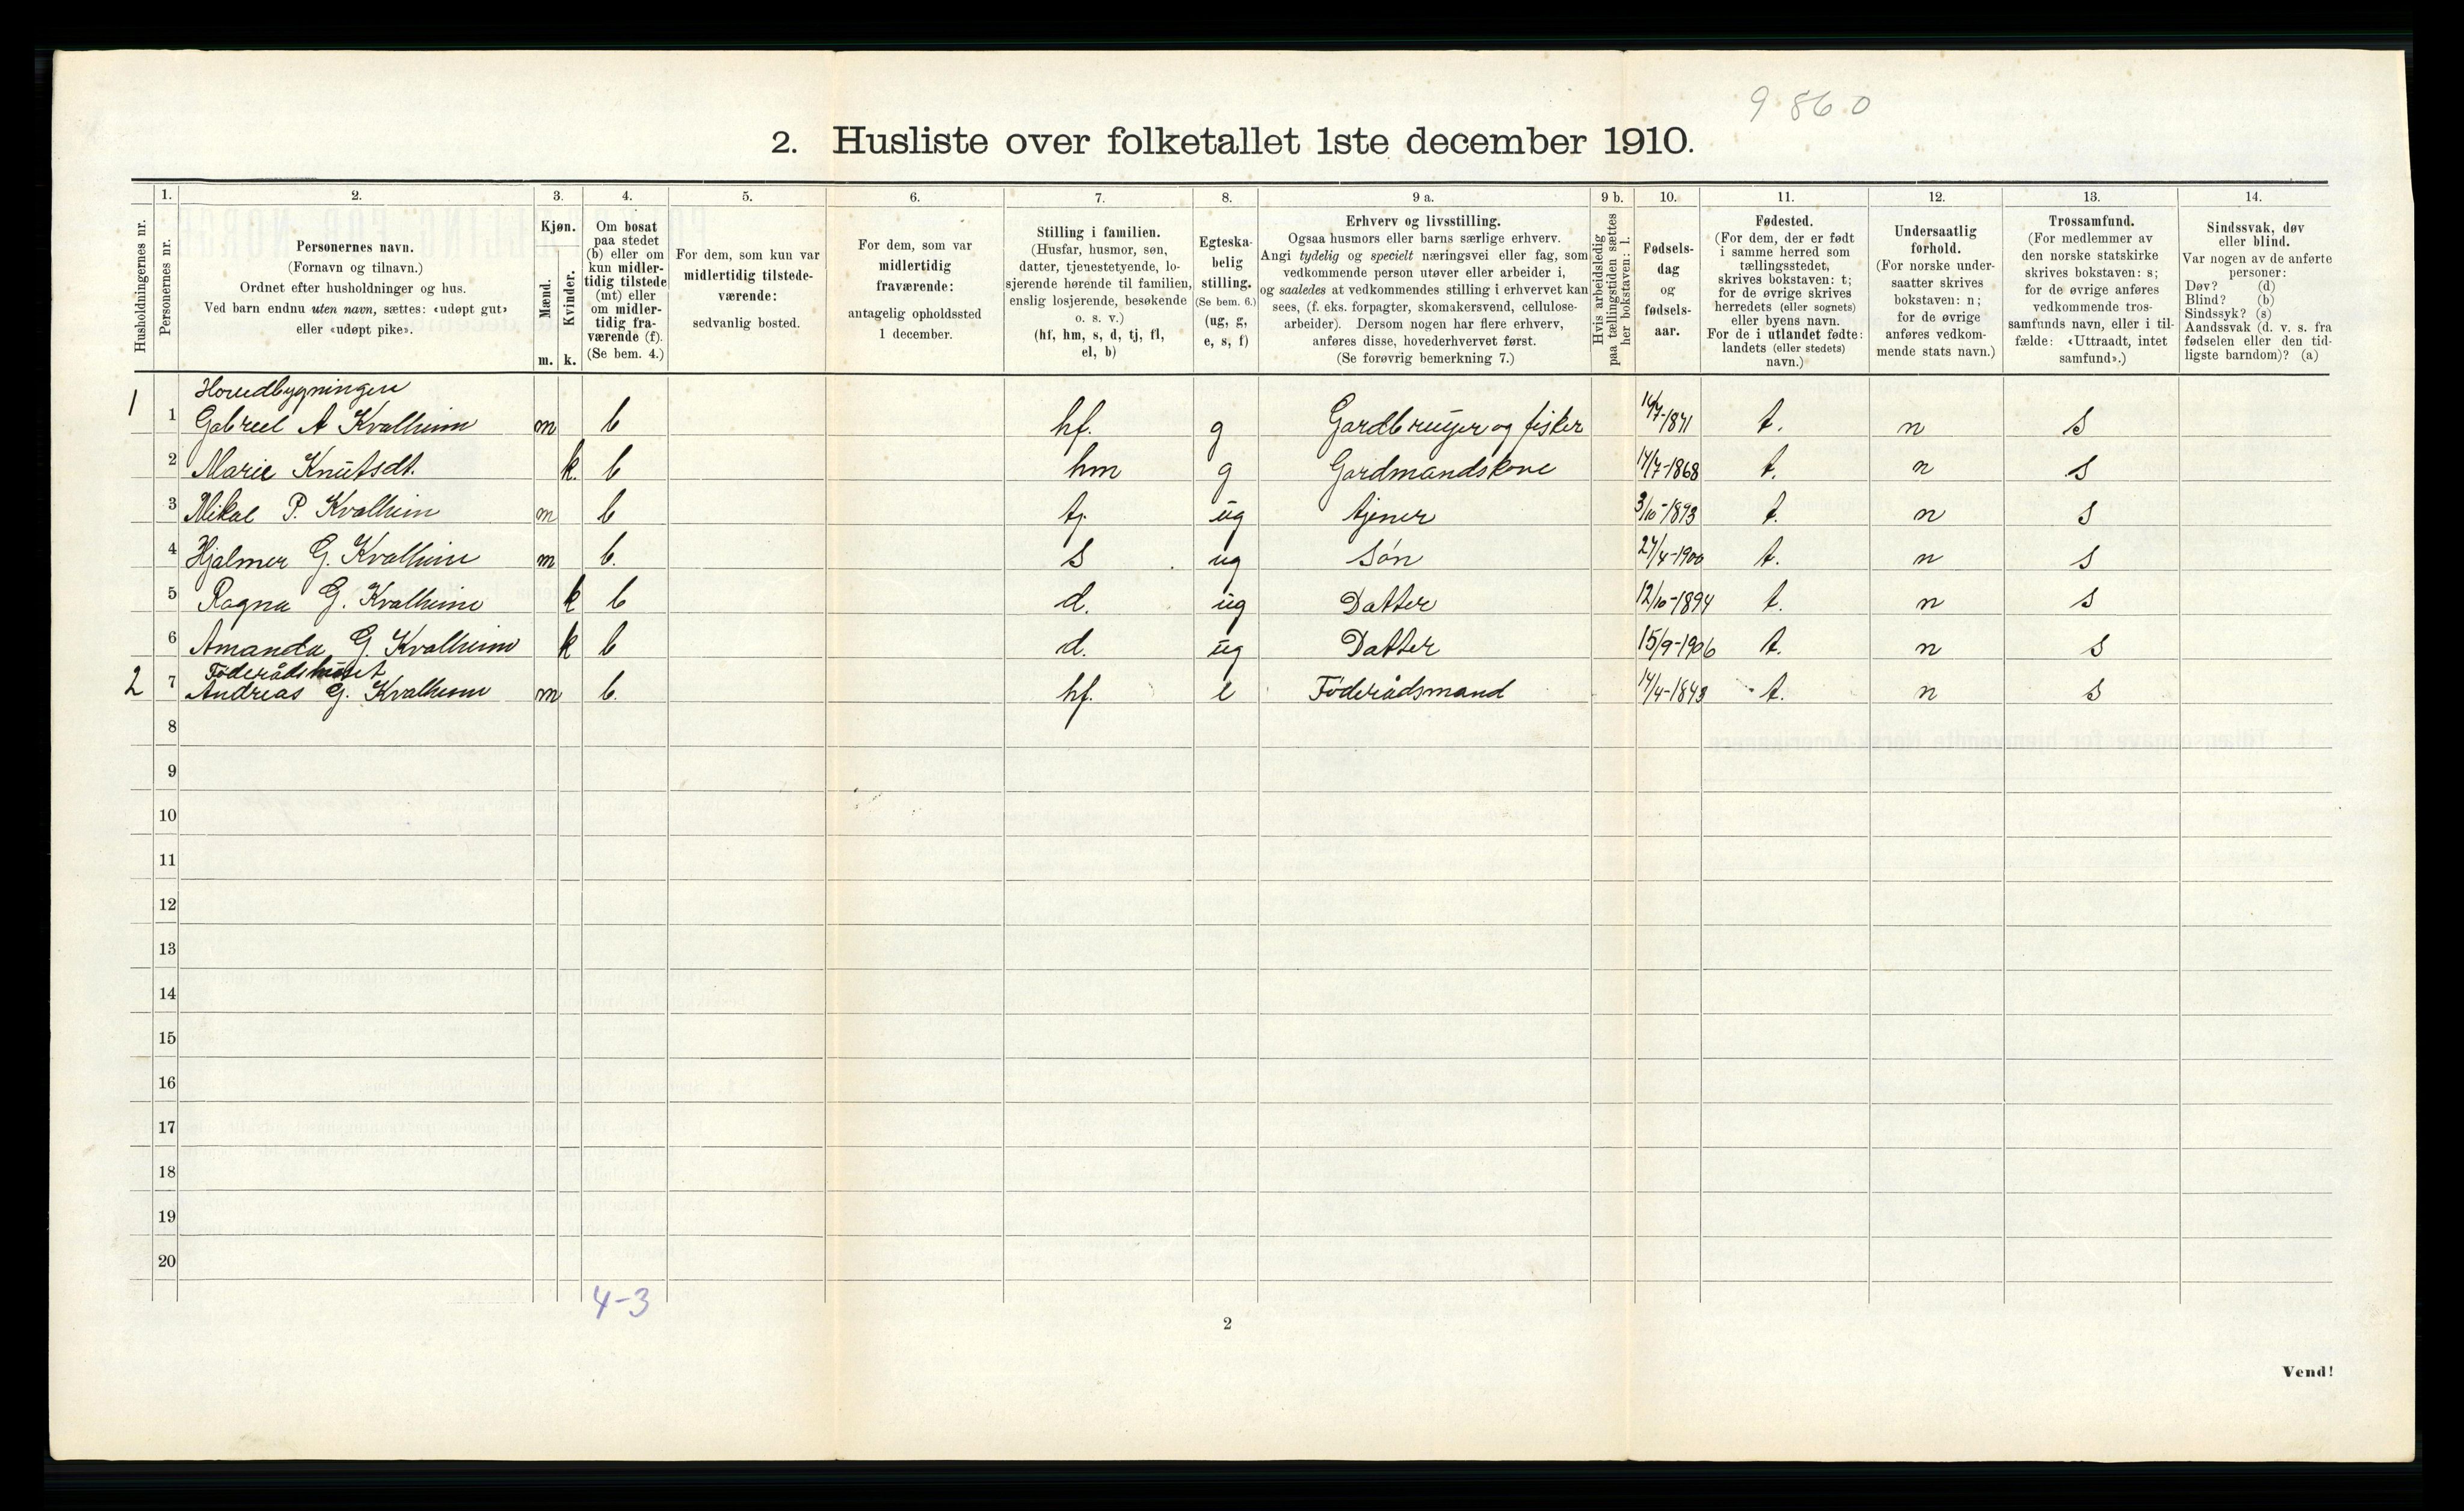 9 86 0
2. Husliste over folketallet 1ste december 1910.
Husholdningernes nr.
1.
Personernes nr.
2.
Personernes navn.
(Fornavn og tilnavn.)
Ordnet efter husholdninger og hus.
Ved barn endnu uten navn, sættes: «udøpt gut»
eller «udøpt pike».
3.
Kjøn.
Mænd.
Kvinder.
m. k.
4.
Om bosat
paa stedet
(b) eller om
kun midler-
tidig tilstede
(mt) eller
om midler-
tidig fra-
værende (f).
(Se bem. 4.)
5.
For dem, som kun var
midlertidig tilstede-
værende:
sedvanlig bosted.
6.
For dem, som var
midlertidig
fraværende:
antagelig opholdssted
1 december.
7.
Stilling i familien.
(Husfar, husmor, søn,
datter, tjenestetyende, lo-
sjerende hørende til familien,
enslig losjerende, besøkende
o. s. v.)
(hf, hm, s, d, tj, fl,
el, b)
8.
Egteska-
belig
stilling.
(Se bem. 6.)
(ug, g,
e, s, f)
9 a.
Erhverv og livsstilling.
Ogsaa husmors eller barns særlige erhverv.
Angi tydelig og specielt næringsvei eller fag, som
vedkommende person utøver eller arbeider i,
og saaledes at vedkommendes stilling i erhvervet kan
sees, (f. eks. forpagter, skomakersvend, cellulose-
arbeider). Dersom nogen har flere erhverv,
anføres disse, hovederhvervet først.
(Se forøvrig bemerkning 7.)
9 b.
Hvis arbeidsledig
paa tællingstiden sættes
her bokstaven: l.
10.
Fødsels-
dag
og
fødsels-
aar.
11.
Fødested.
(For dem, der er født
i samme herred som
tællingsstedet,
skrives bokstaven: t;
for de øvrige skrives
herredets (eller sognets)
eller byens navn.
For de i utlandet fødte:
landets (eller stedets)
navn.)
12.
Undersaatlig
forhold.
(For norske under-
saatter skrives
bokstaven: n;
for de øvrige
anføres vedkom-
mende stats navn.)
13.
Trossamfund.
(For medlemmer av
den norske statskirke
skrives bokstaven: s;
for de øvrige anføres
vedkommende tros-
samfunds navn, eller i til-
fælde: «Uttraadt, intet
samfund».)
14.
Sindssvak, døv
eller blind.
Var nogen av de anførte
personer:
Døv? (d)
Blind? (b)
Sindssyk? (s)
Aandssvak (d. v. s. fra
fødselen eller den tid-
ligste barndom)? (a)
Hovedbygningen
1 1 Gabriel A Kvalheim m b hf. g Gardbruger og fisker 14/7-1871 t. n s
2 Marie Knutsdt. k. b hm g Gardmandskone 14/7-1868 t. n s
3 Mikal P. Kvalheim m b tj. ug tjener 3/10-1893 t. n s
4 Hjalmer G. Kvalheim m b. s ug Søn 27/4-1900 t. n s
5 Ragna G. Kvalheim k b d. ug Datter 12/10-1894 t. n s
6 Amanda G. Kvalheim k b d. ug Datter 15/9-1906 t. n s
Föderådshuset
2 7 Andreas G. Kvalheim m b. hf. e Föderådsmand 14/4-1843 t. n s
8
9
10
11
12
13
14
15
16
17
18
19
20
4-3
2
Vend!